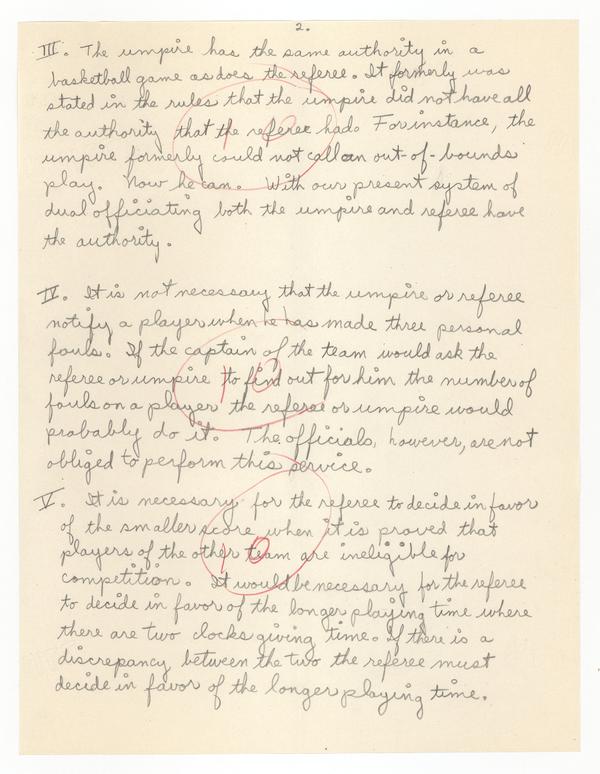 2.
III. The umpire has the same authority in a
basketball game as does the referee. It formerly was
stated in the rules that the umpire did not have all
the authority that the referee had. For instance, the
umpire formerly could not call an out-of-bounds
play. Now he can. With our present system of
dual officiating both the umpire and referee have
the authority.
IV. It is not necessary that the umpire or referee
notify a player when he has made three personal
fouls. If the captain of the team would ask the
referee or umpire to find out for him the number of
fouls on a player the referee or umpire would
probably do it. The officials, however, are not
obliged to perform this service.
V. It is necessary for the referee to decide in favor
of the smaller score when it is proved that
players of the other team are ineligible for
competition. It would be necessary for the referee
to decide in favor of the longer playing time where
there are two clocks giving time. If there is a
discrepancy between the two the referee must
decide in favor of the longer playing time.
10
10
10